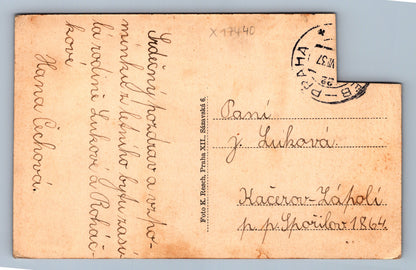 X17440
Srdečný pozdrav a vzpo-
mínku z letního bytu zasí-
lá rodině Lukově a Roháč-
kové
Hana Čechová.
Foto K. Rosch, Praha XII. Sázavská 6.
PRAHA
CHEB
VII 37
Paní
J. Luková.
Kačerov-Zápolí
p.p. Spořilov 1864.